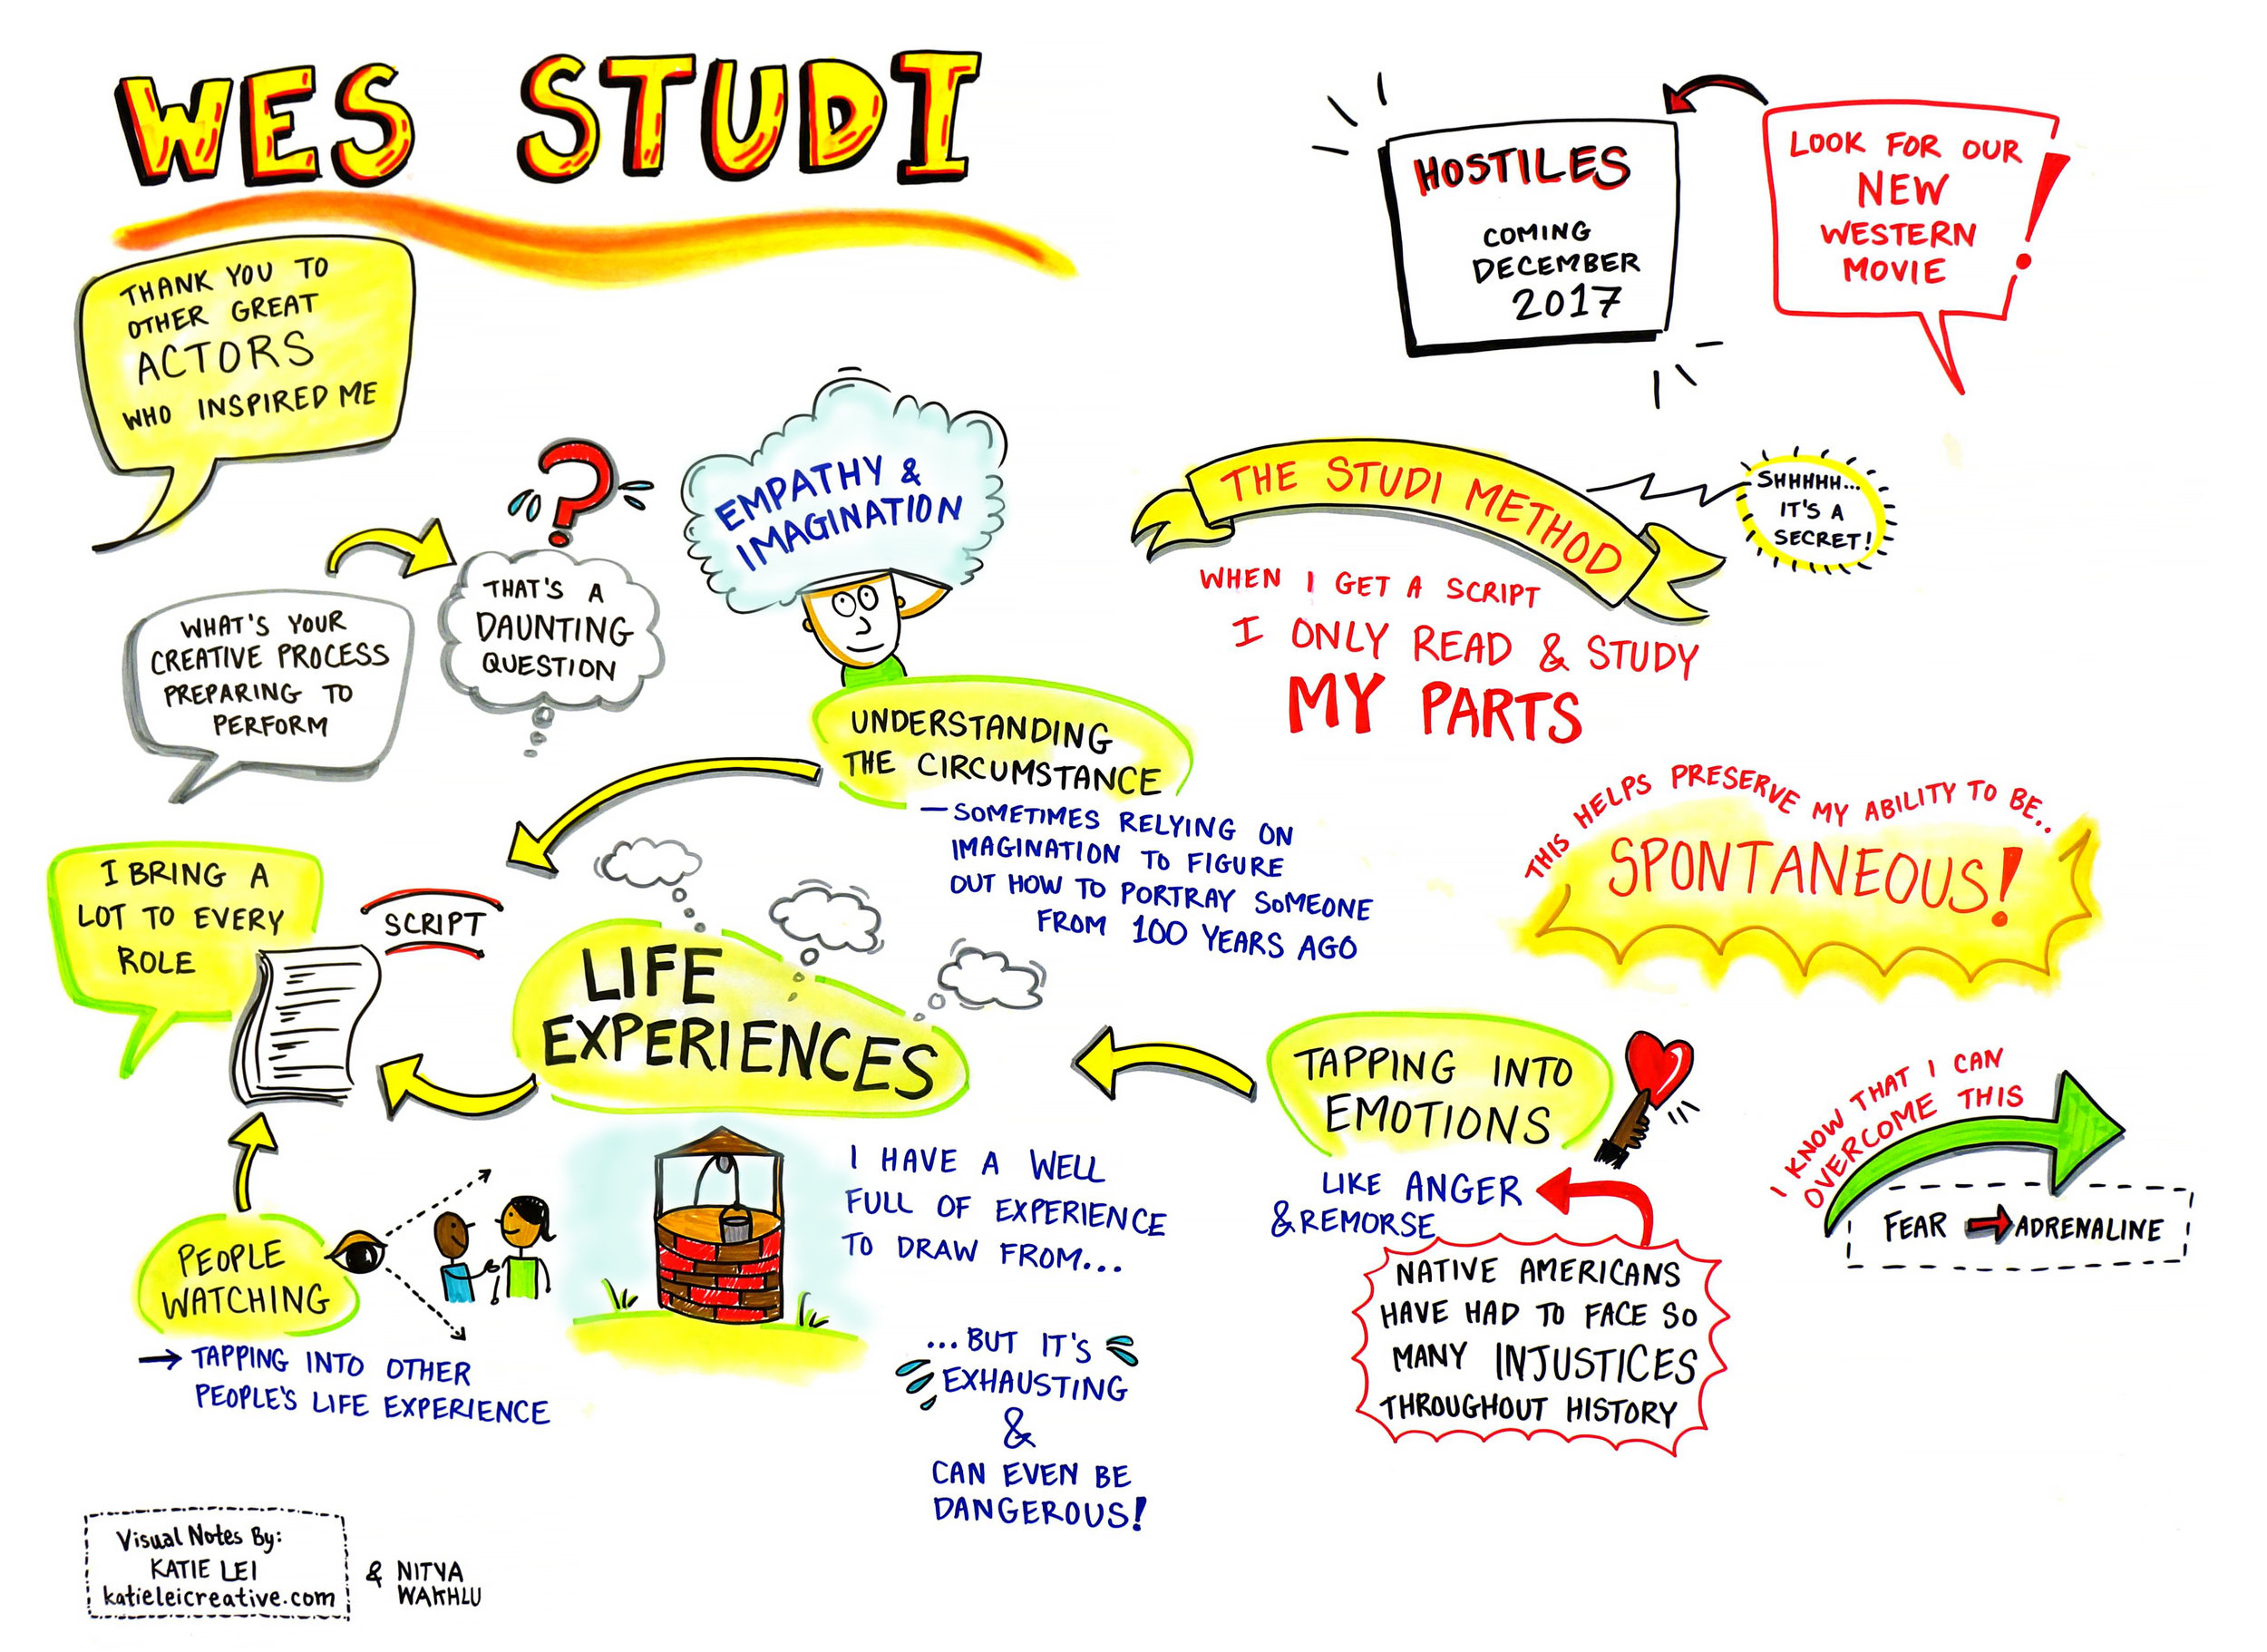 WES STUDI
THANK YOU TO
OTHER GREAT
ACTORS
WHO INSPIRED ME
HOSTILES
COMING
DECEMBER
2017
LOOK FOR OUR
NEW
WESTERN
MOVIE
!
WHAT'S YOUR
CREATIVE PROCESS
PREPARING TO
PERFORM
?
THAT'S A
DAUNTING
QUESTION
EMPATHY &
IMAGINATION
UNDERSTANDING
THE CIRCUMSTANCE
— SOMETIMES RELYING ON
IMAGINATION TO FIGURE
OUT HOW TO PORTRAY SOMEONE
FROM 100 YEARS AGO
THE STUDI METHOD
SHHHHH...
IT'S A
SECRET!
WHEN I GET A SCRIPT
I ONLY READ & STUDY
MY PARTS
THIS HELPS PRESERVE MY ABILITY TO BE..
SPONTANEOUS!
I BRING A
LOT TO EVERY
ROLE
SCRIPT
LIFE
EXPERIENCES
I HAVE A WELL
FULL OF EXPERIENCE
TO DRAW FROM...
...BUT IT'S
EXHAUSTING
&
CAN EVEN BE
DANGEROUS!
PEOPLE
WATCHING
→ TAPPING INTO OTHER
PEOPLE'S LIFE EXPERIENCE
TAPPING INTO
EMOTIONS
LIKE ANGER
& REMORSE
NATIVE AMERICANS
HAVE HAD TO FACE SO
MANY INJUSTICES
THROUGHOUT HISTORY
I KNOW THAT I CAN
OVERCOME THIS
FEAR → ADRENALINE
Visual Notes By:
KATIE LEI
katieleicreative.com
& NITYA
WAKHLU